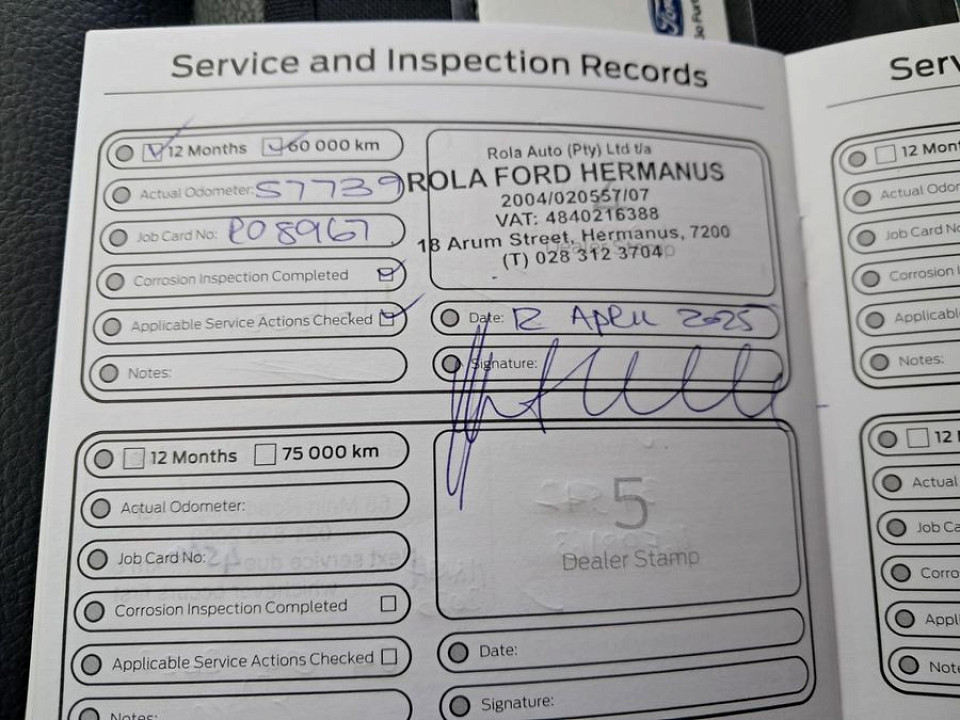 Ford
Service and Inspection Records
12 Months 60 000 km
Actual Odometer: 57739
Job Card No: P08967
Corrosion Inspection Completed
Applicable Service Actions Checked
Notes:
Rola Auto (Pty) Ltd t/a
ROLA FORD HERMANUS
2004/020557/07
VAT: 4840216388
18 Arum Street, Hermanus, 7200
(T) 028 312 3704
Dealer Stamp
Date: 12 April 2025
Signature:
12 Months 75 000 km
Actual Odometer:
Job Card No:
Corrosion Inspection Completed
Applicable Service Actions Checked
Notes:
5
Dealer Stamp
Date:
Signature:
Serv
12 Mont
Actual Odor
Job Card No
Corrosion I
Applicabl
Notes:
12
Actual
Job Ca
Corro
Appl
Note